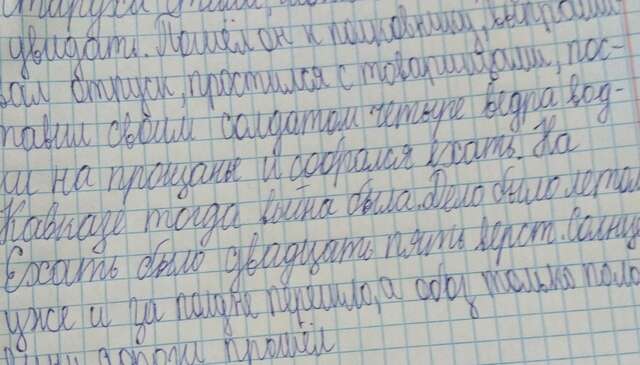 увидать. Пошёл он к полковнику, выправи-
вал отпуск, простился с товарищами, пос-
тавил своим солдатам четыре ведра вод-
ки на прощанье и собрался ехать. На
Кавказе тогда война была. Дело было летом
Ехать было двадцать пять верст. Солнце
уже и за полдни перешло, а обоз только поло
вину дороги прошёл